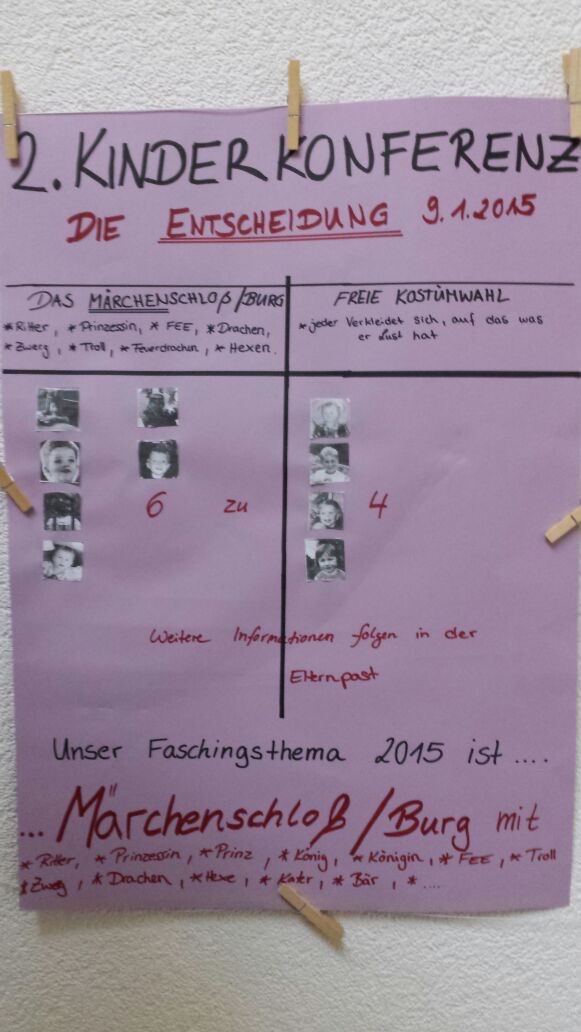 2. KINDERKONFERENZ
DIE ENTSCHEIDUNG 9.1.2015
DAS MÄRCHENSCHLOß/BURG
* Ritter, * Prinzessin, * FEE, * Drachen,
* Zwerg, * Troll, * Feuerdrachen, * Hexen.
FREIE KOSTÜMWAHL
* jeder Verkleidet sich, auf das was
er Lust hat
6 zu 4
Weitere Informationen folgen in der
Elternpost
Unser Faschingsthema 2015 ist ....
... Märchenschloß/Burg mit
* Ritter, * Prinzessin, * Prinz, * König, * Königin, * FEE, * Troll
* Zwerg, * Drachen, * Hexe, * Kater, * Bär, * ....